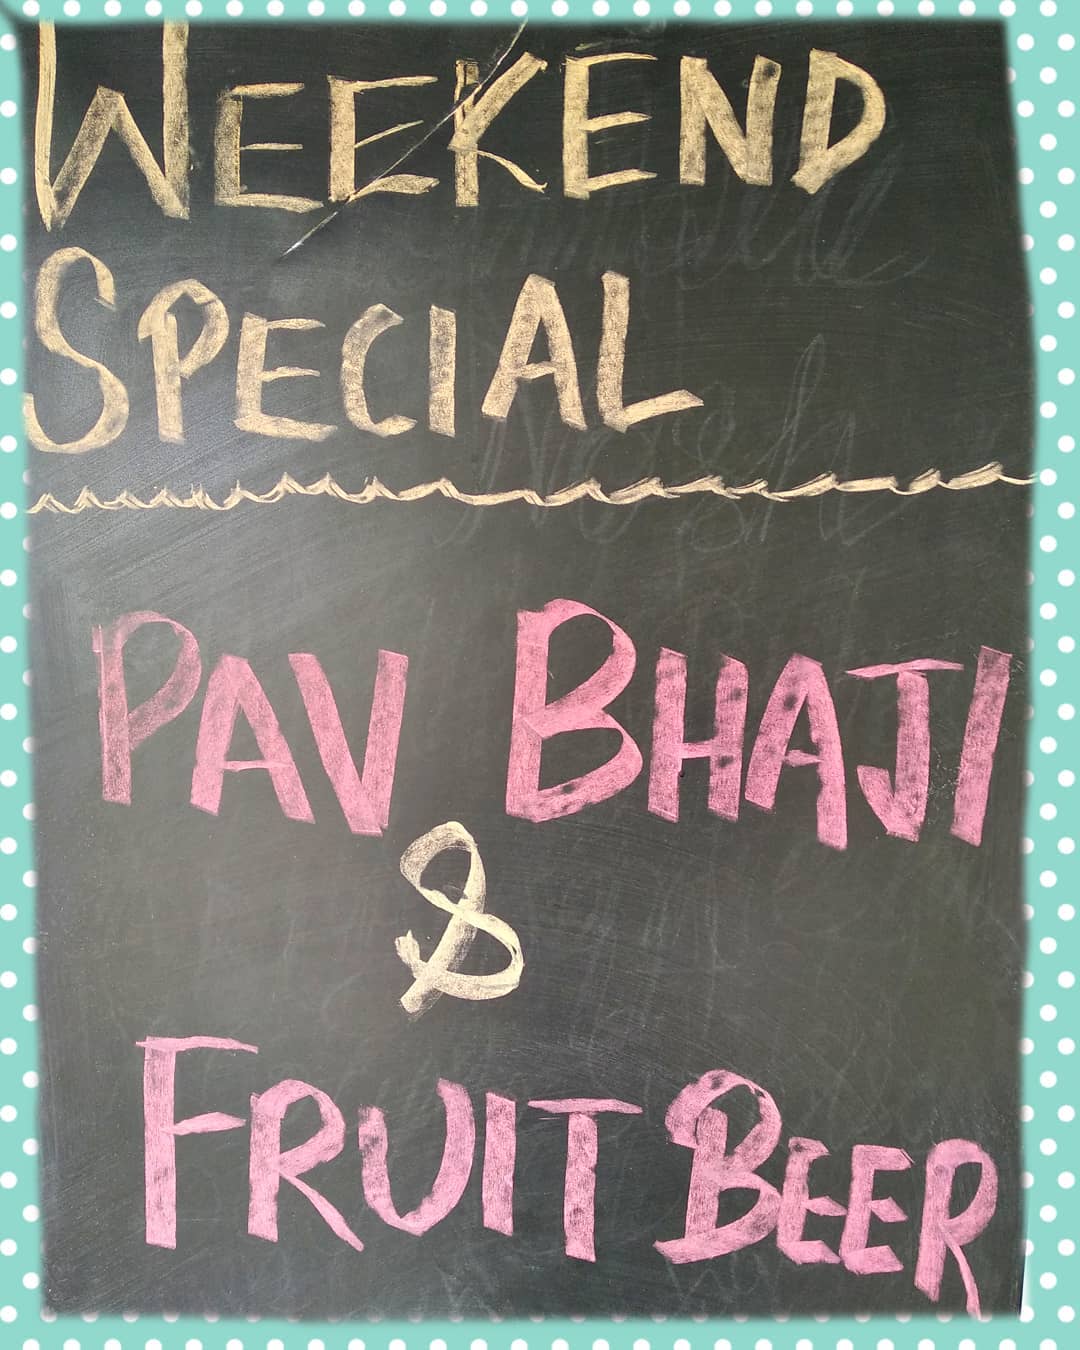 WEEKEND
SPECIAL
PAV BHAJI
&
FRUIT BEER